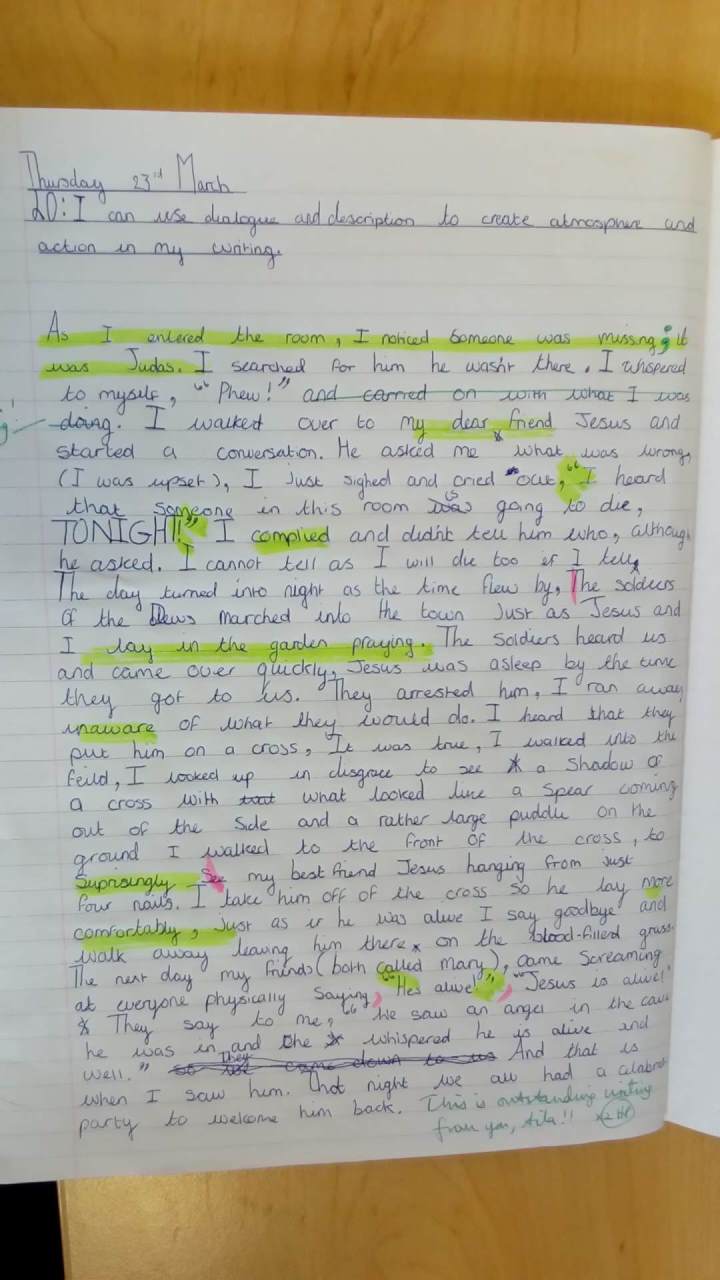 Thursday 23rd March
LO: I can use dialogue and description to create atmosphere and
action in my writing.
As I entered the room, I noticed someone was missing; it
was Judas. I searched for him he wasn't there. I whispered
to myself, "Phew!" and carried on with what I was
doing. I walked over to my dear friend Jesus and
started a conversation. He asked me what was wrong,
(I was upset), I just sighed and cried out, "I heard
that someone in this room is going to die,
TONIGHT!" I complied and didn't tell him who, although
he asked. I cannot tell as I will die too if I tell.
The day turned into night as the time flew by, The soldiers
of the Jews marched into the town just as Jesus and
I lay in the garden praying. The soldiers heard us
and came over quickly, Jesus was asleep by the time
they got to us. They arrested him, I ran away
unaware of what they would do. I heard that they
put him on a cross, It was true, I walked into the
feild, I looked up in disgrace to see a shadow of
a cross with what looked like a spear coming
out of the side and a rather large puddle on the
ground I walked to the front of the cross, to
Suprisingly see my best friend Jesus hanging from just
four nails. I take him off of the cross so he lay more
comfortably, just as if he was alive I say goodbye and
walk away leaving him there on the blood-filled grass.
The next day my friends (both called Mary), came screaming
at everyone physically saying, "Hes alive!", "Jesus is alive!"
They say to me, "We saw an angel in the cave
he was in and he whispered he is alive and
well." And that is
when I saw him. That night we all had a
party to welcome him back. This is outstanding writing
from you,